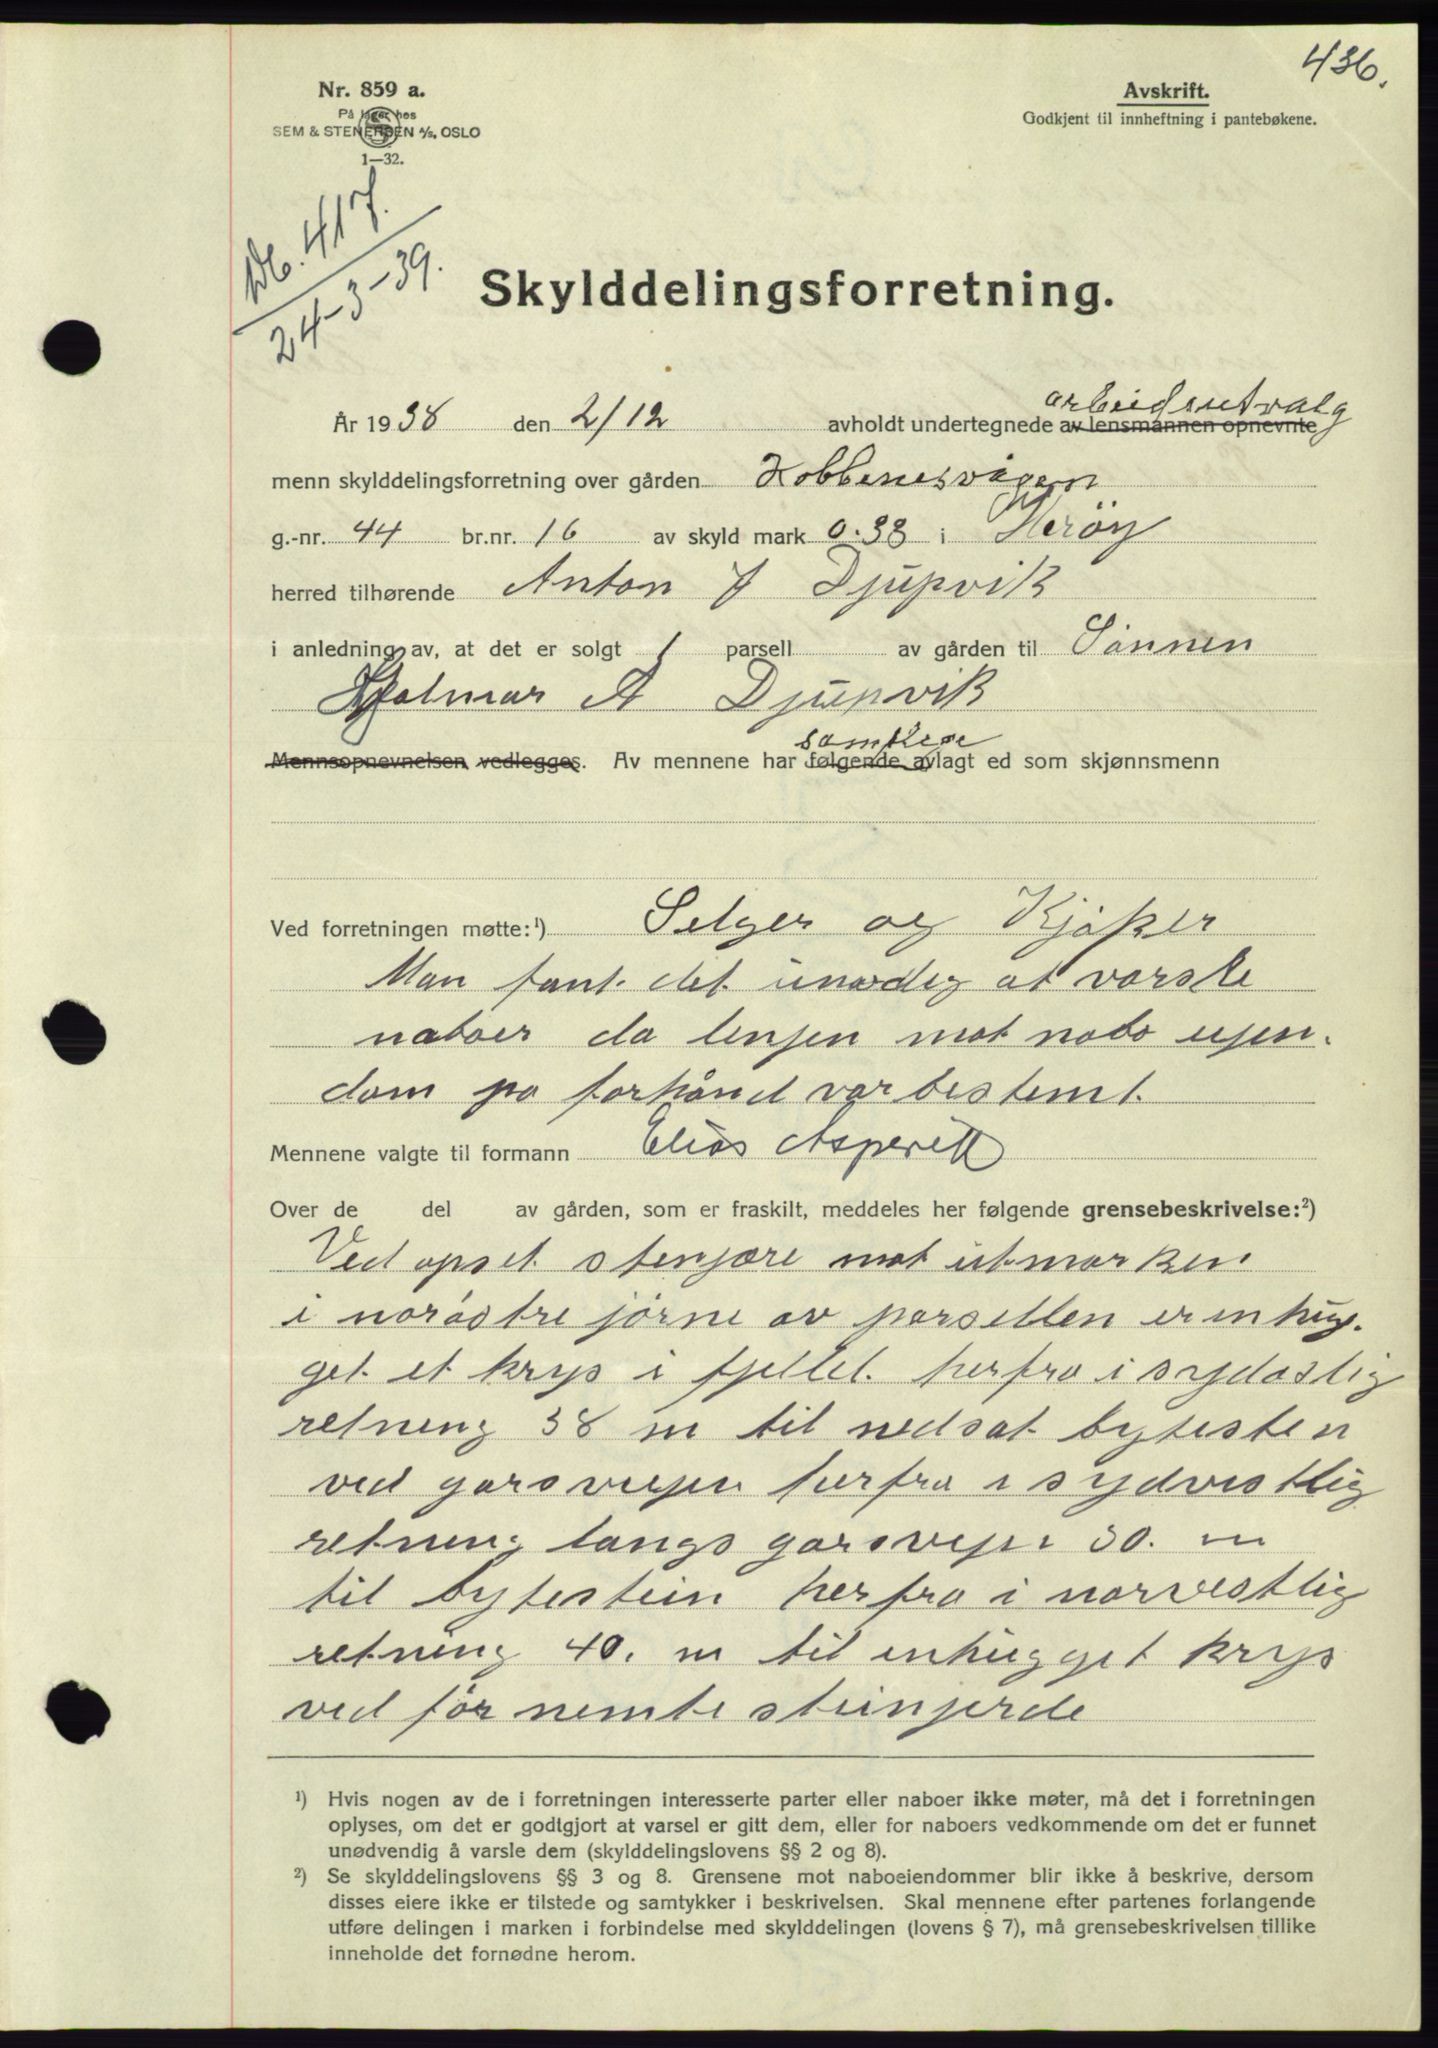 436.
Nr. 859 a.
På lager hos
SEM & STENERSEN A/S, OSLO
1—32.
Avskrift.
Godkjent til innheftning i pantebøkene.
417.
24-3-39.
Skylddelingsforretning.
arbeidsutvalg
År 1938 den 2/12 avholdt undertegnede av lensmannen opnevnte
menn skylddelingsforretning over gården Kobbenesvågen
g.-nr. 44 br.nr. 16 av skyld mark 0.38 i Herøy
herred tilhørende Anton J Djupvik
i anledning av, at det er solgt 1 parsell av gården til Sønnen
Hjalmar A Djupvik
samtlige
Mennsopnevnelsen vedlegges. Av mennene har følgende avlagt ed som skjønnsmenn
Ved forretningen møtte:¹) Selger og Kjøper
Man fant det unødig at varsle
naboer da lenjen mot nabo eijen-
dom på forhånd var bestemt.
Mennene valgte til formann Elias Aspevik
Over de del av gården, som er fraskilt, meddeles her følgende grensebeskrivelse:²)
Ved opset stenjære mot utmarken
i norøstre jørne av parsellen er inhug-
get et krys i fjellet. herfra i sydøstlig
retning 38 m til nedsat bytesten
ved garsveijen herfra i sydvestlig
retning langs garsvejen 30. m
til bytestein herfra i norvestlig
retning 40. m til inhugget krys
ved før nemte steinjerde
¹) Hvis nogen av de i forretningen interesserte parter eller naboer ikke møter, må det i forretningen
oplyses, om det er godtgjort at varsel er gitt dem, eller for naboers vedkommende om det er funnet
unødvendig å varsle dem (skylddelingslovens §§ 2 og 8).
²) Se skylddelingslovens §§ 3 og 8. Grensene mot naboeiendommer blir ikke å beskrive, dersom
disses eiere ikke er tilstede og samtykker i beskrivelsen. Skal mennene efter partenes forlangende
utføre delingen i marken i forbindelse med skylddelingen (lovens § 7), må grensebeskrivelsen tillike
inneholde det fornødne herom.